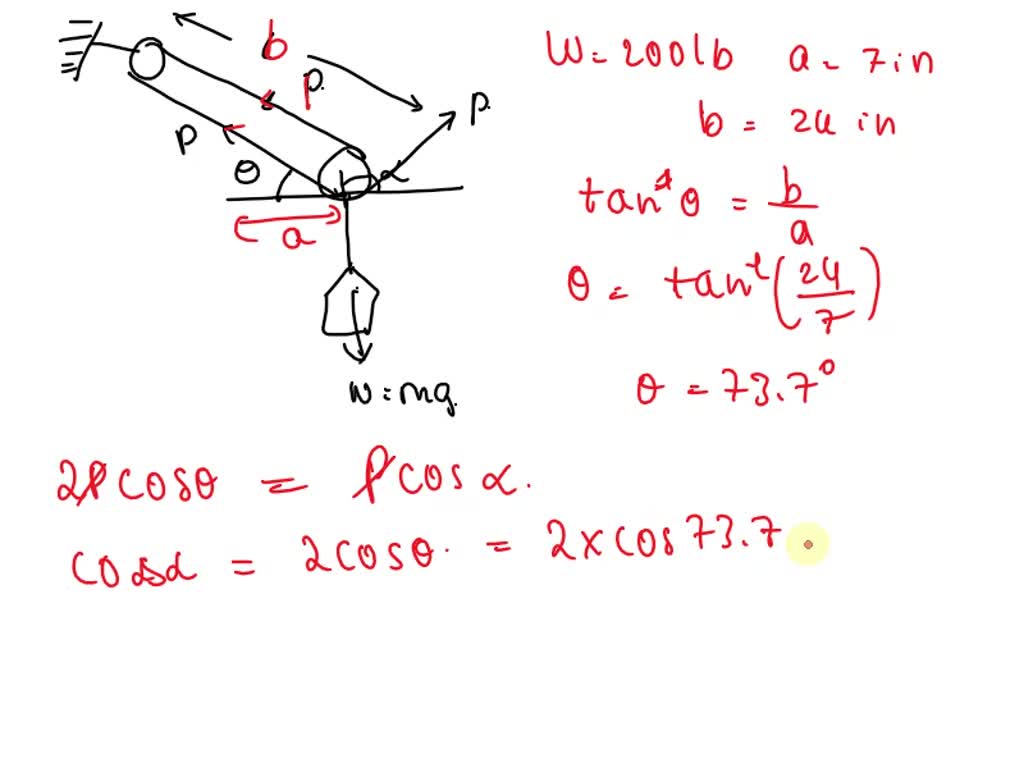 b
P.
P
P.
θ
α
a
W = mg.
W = 200 lb a = 7 in
b = 24 in
tan θ = b/a
θ = tan⁻¹(24/7)
θ = 73.7°
2P cos θ = P cos α.
cos α = 2 cos θ. = 2 x cos 73.7